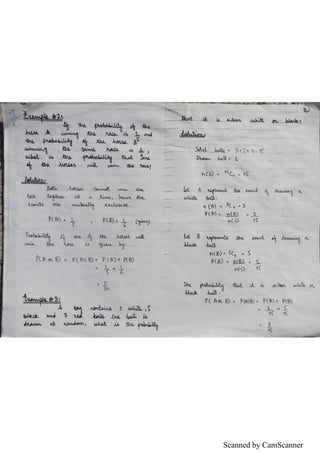 Example #2:
If the probability of the
horse A winning the race is 1/5 and
the probability of the horse B
winning the same race is 1/6,
what is the probability that one
of the horses will win the race?
Solution:
Both horses cannot win the
race together at a time, hence the
events are mutually exclusive.
P(A) = 1/5 , P(B) = 1/6 (given)
Probability of one of the horses will
win the race is given by:
P(A or B) = P(A∪B) = P(A) + P(B)
= 1/5 + 1/6
= 11/30
Example #3:
A bag contains 3 white, 5
black and 7 red balls. One ball is
drawn at random, what is the probability
that it is either white or black?
Solution:
Total balls = 3+5+7 = 15
Drawn ball = 1
n(S) = ¹⁵C₁ = 15
Let A represent the event of drawing a
white ball.
n(A) = ³C₁ = 3
P(A) = n(A)/n(S) = 3/15
Let B represents the event of drawing a
black ball
n(B) = ⁵C₁ = 5
P(B) = n(B)/n(S) = 5/15
The probability that it is either white or
black ball:
P(A or B) = P(A∪B) = P(A) + P(B)
= 3/15 + 5/15
= 8/15
Scanned by CamScanner